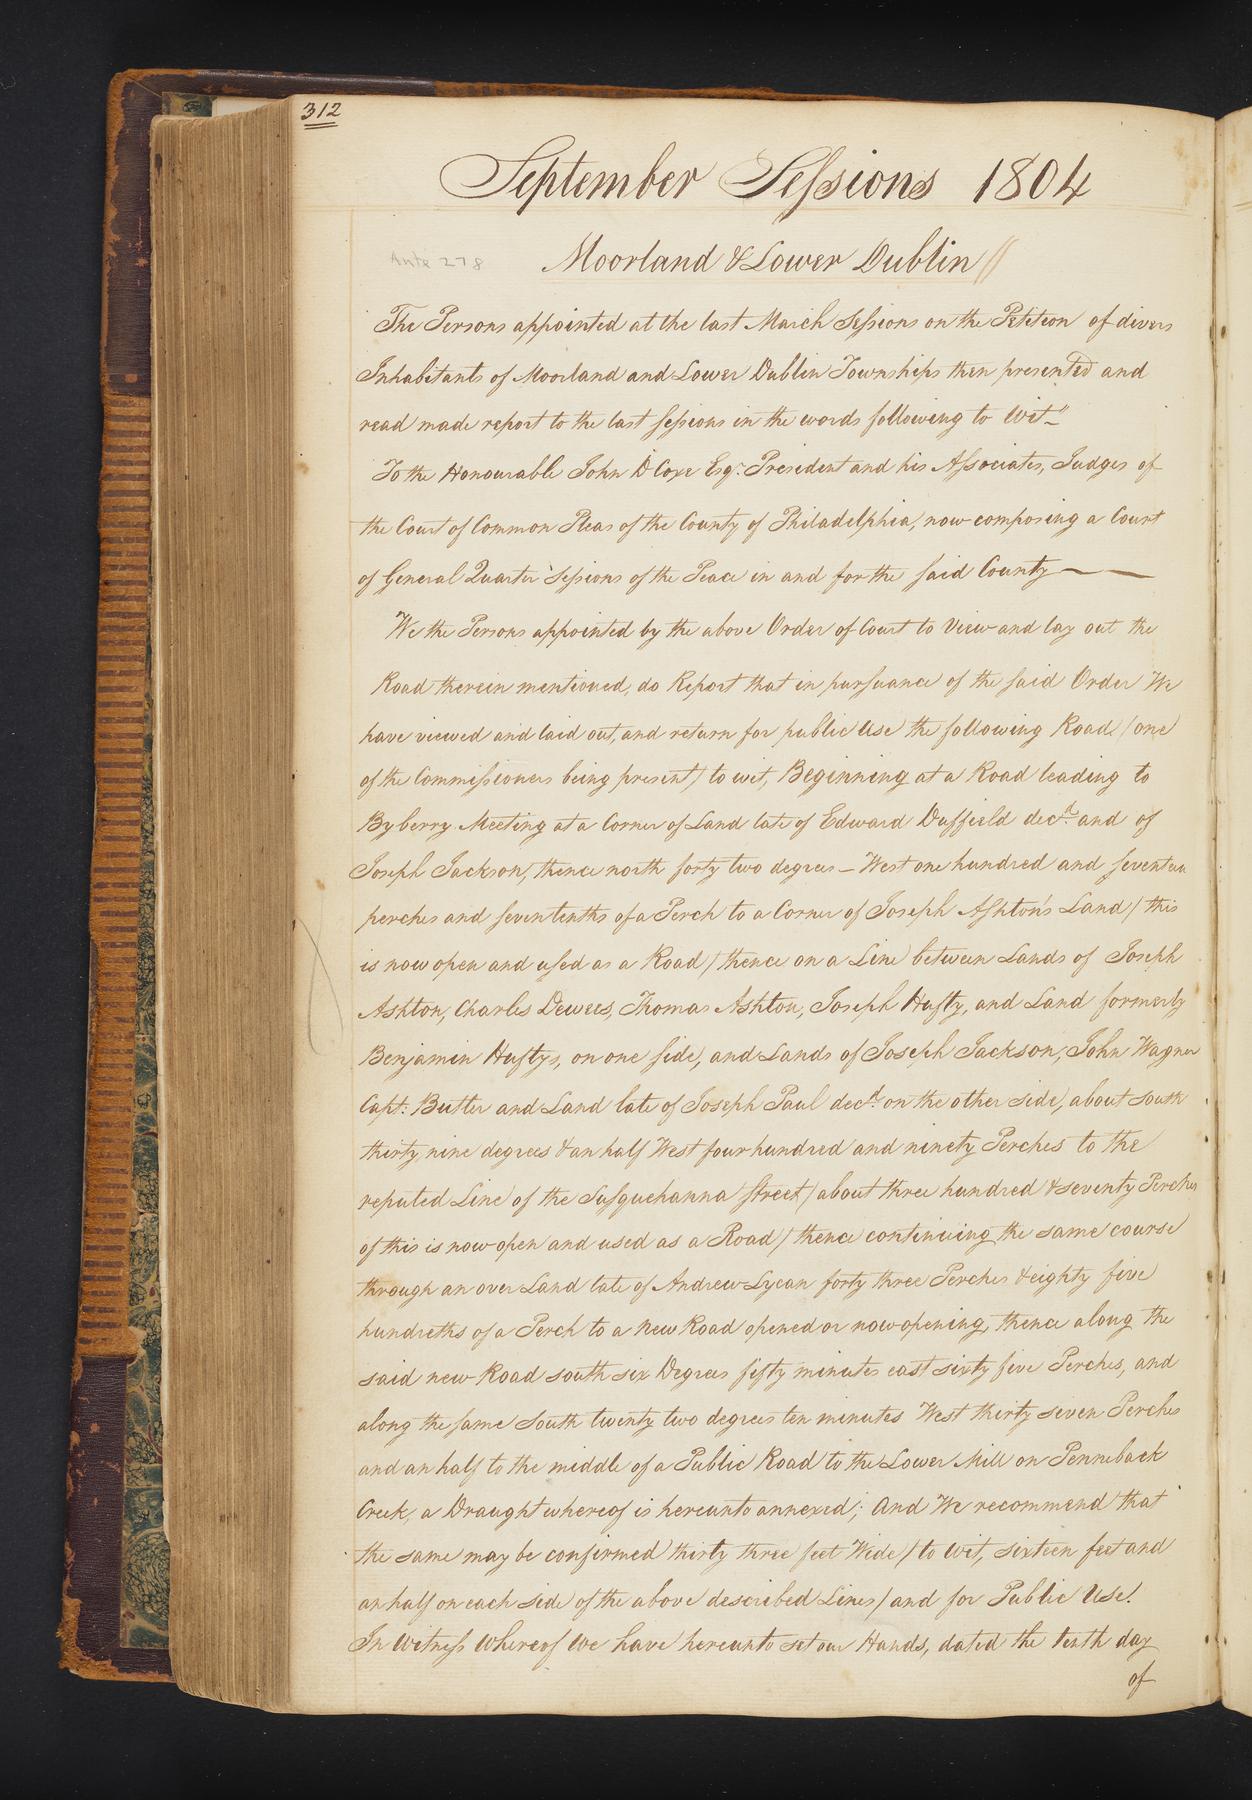 312
September Sessions 1804
Ante 278
Moorland & Lower Dublin //
The Persons appointed at the last March Sessions on the Petition of divers
Inhabitants of Moorland and Lower Dublin Townships then presented and
read made report to the last Sessions in the words following to Wit"
To the Honourable John D Coxe Esqr. President and his Associates, Judges of
the Court of Common Pleas of the County of Philadelphia, now composing a Court
of General Quarter Sessions of the Peace in and for the said County
We the Persons appointed by the above Order of Court to View and lay out the
Road therein mentioned, do Report that in pursuance of the said Order We
have viewed and laid out, and return for public Use the following Road / one
of the Commissioners being present / to wit, Beginning at a Road leading to
Byberry Meeting at a Corner of Land late of Edward Duffield decd. and of
Joseph Jackson, thence north forty two degrees West one hundred and seventeen
perches and seven tenths of a Perch to a Corner of Joseph Ashton's Land / this
is now open and used as a Road / thence on a Line between Lands of Joseph
Ashton, Charles Dewees, Thomas Ashton, Joseph Hufty, and Land formerly
Benjamin Huftys, on one side, and Lands of Joseph Jackson, John Wagner
Capt: Butler and Land late of Joseph Paul decd. on the other side, about south
thirty nine degrees & an half West four hundred and ninety Perches to the
reputed Line of the Susquehanna Street / about three hundred & seventy Perches
of this is now open and used as a Road / thence continuing the same course
through an over Land late of Andrew Lycan forty three Perches & eighty five
hundreths of a Perch to a New Road opened or now opening, thence along the
said new Road south six Degrees fifty minutes east sixty five Perches, and
along the same South twenty two degrees ten minutes West thirty seven Perches
and an half to the middle of a Public Road to the Lower Mill on Penneback
Creek, a Draught whereof is hereunto annexed; And We recommend that
the same may be confirmed thirty three feet Wide / to wit, sixteen feet and
an half on each side of the above described Lines / and for Public Use.
In Witness Whereof We have hereunto set our Hands, dated the tenth day
of